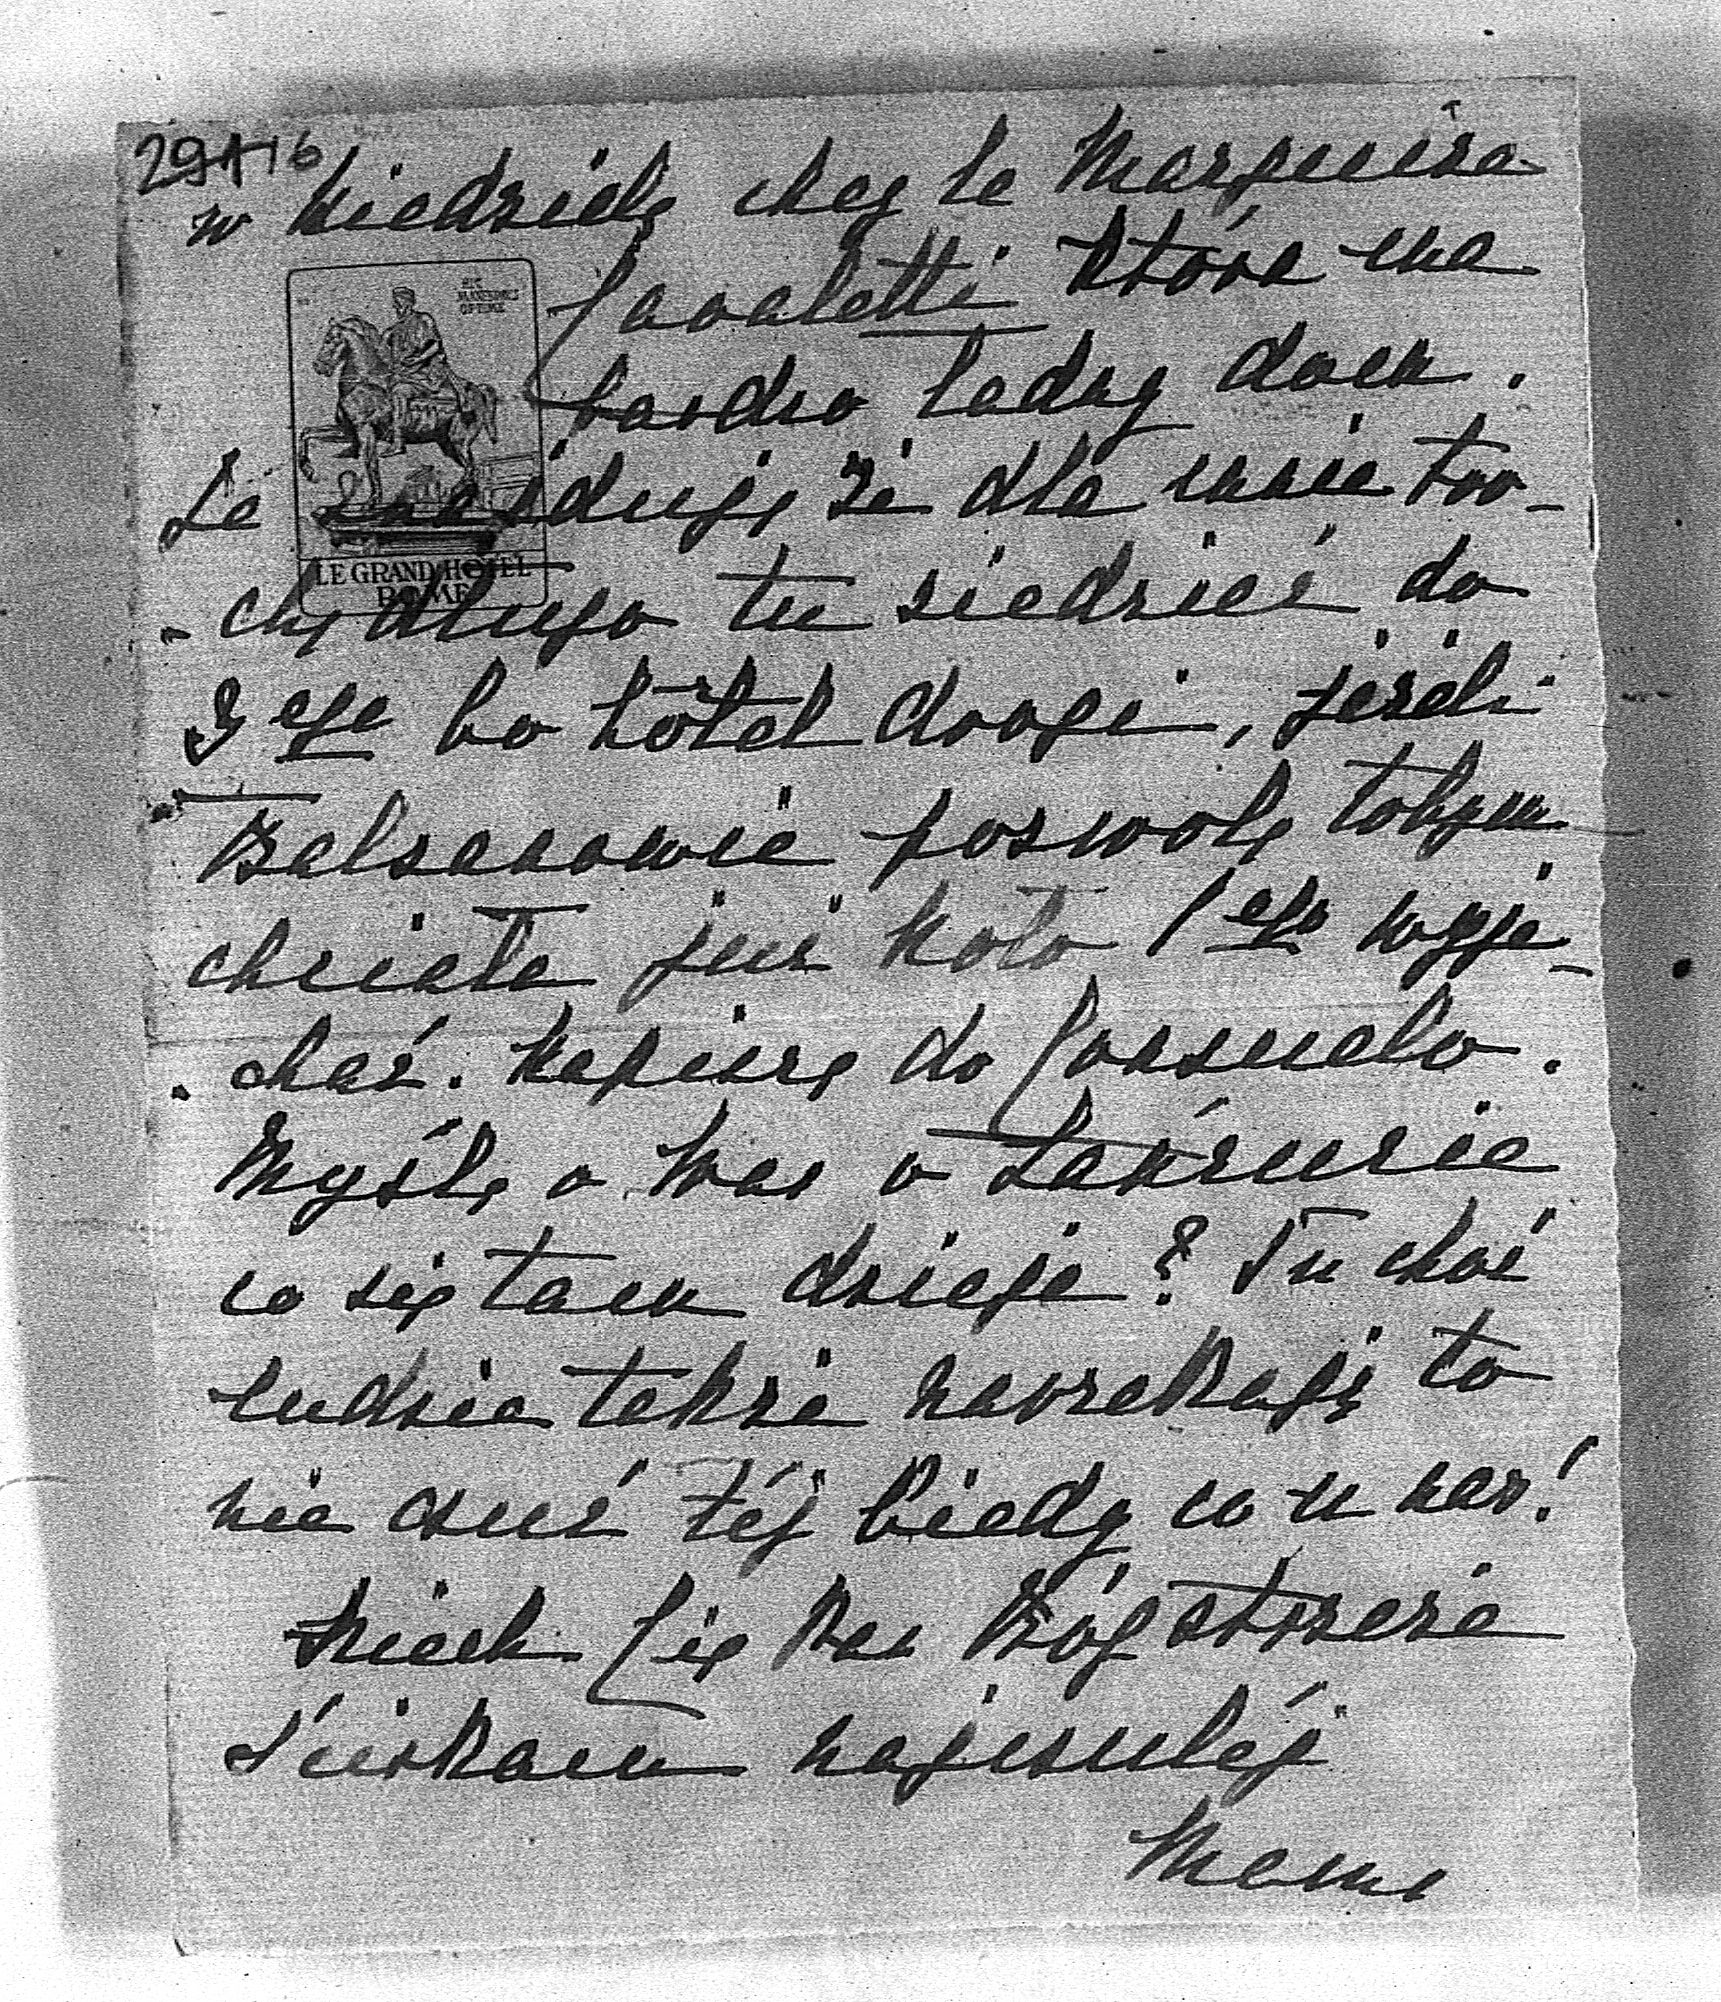 29116
w Niedzielę chez la Marquisa
Cavaletti która ma
bardzo ładny dom.
Że żadną że dla mnie tro-
chę długo tu siedzieć do
3 ego bo hôtel drogi, jeżeli
Balsanowie pozwolą to bym
chciała już koło 1 ego wyje-
chać. Napiszę do Consuelo.
Myślę o Was o Łańcucie
co się tam dzieje? Tu choć
ludzie także narzekają to
nie czuć téj biedy co u nas!
Niech Cię Pan Bóg strzeże
Ściskam najczuléj
Mama
LE GRAND HOTEL
ROME